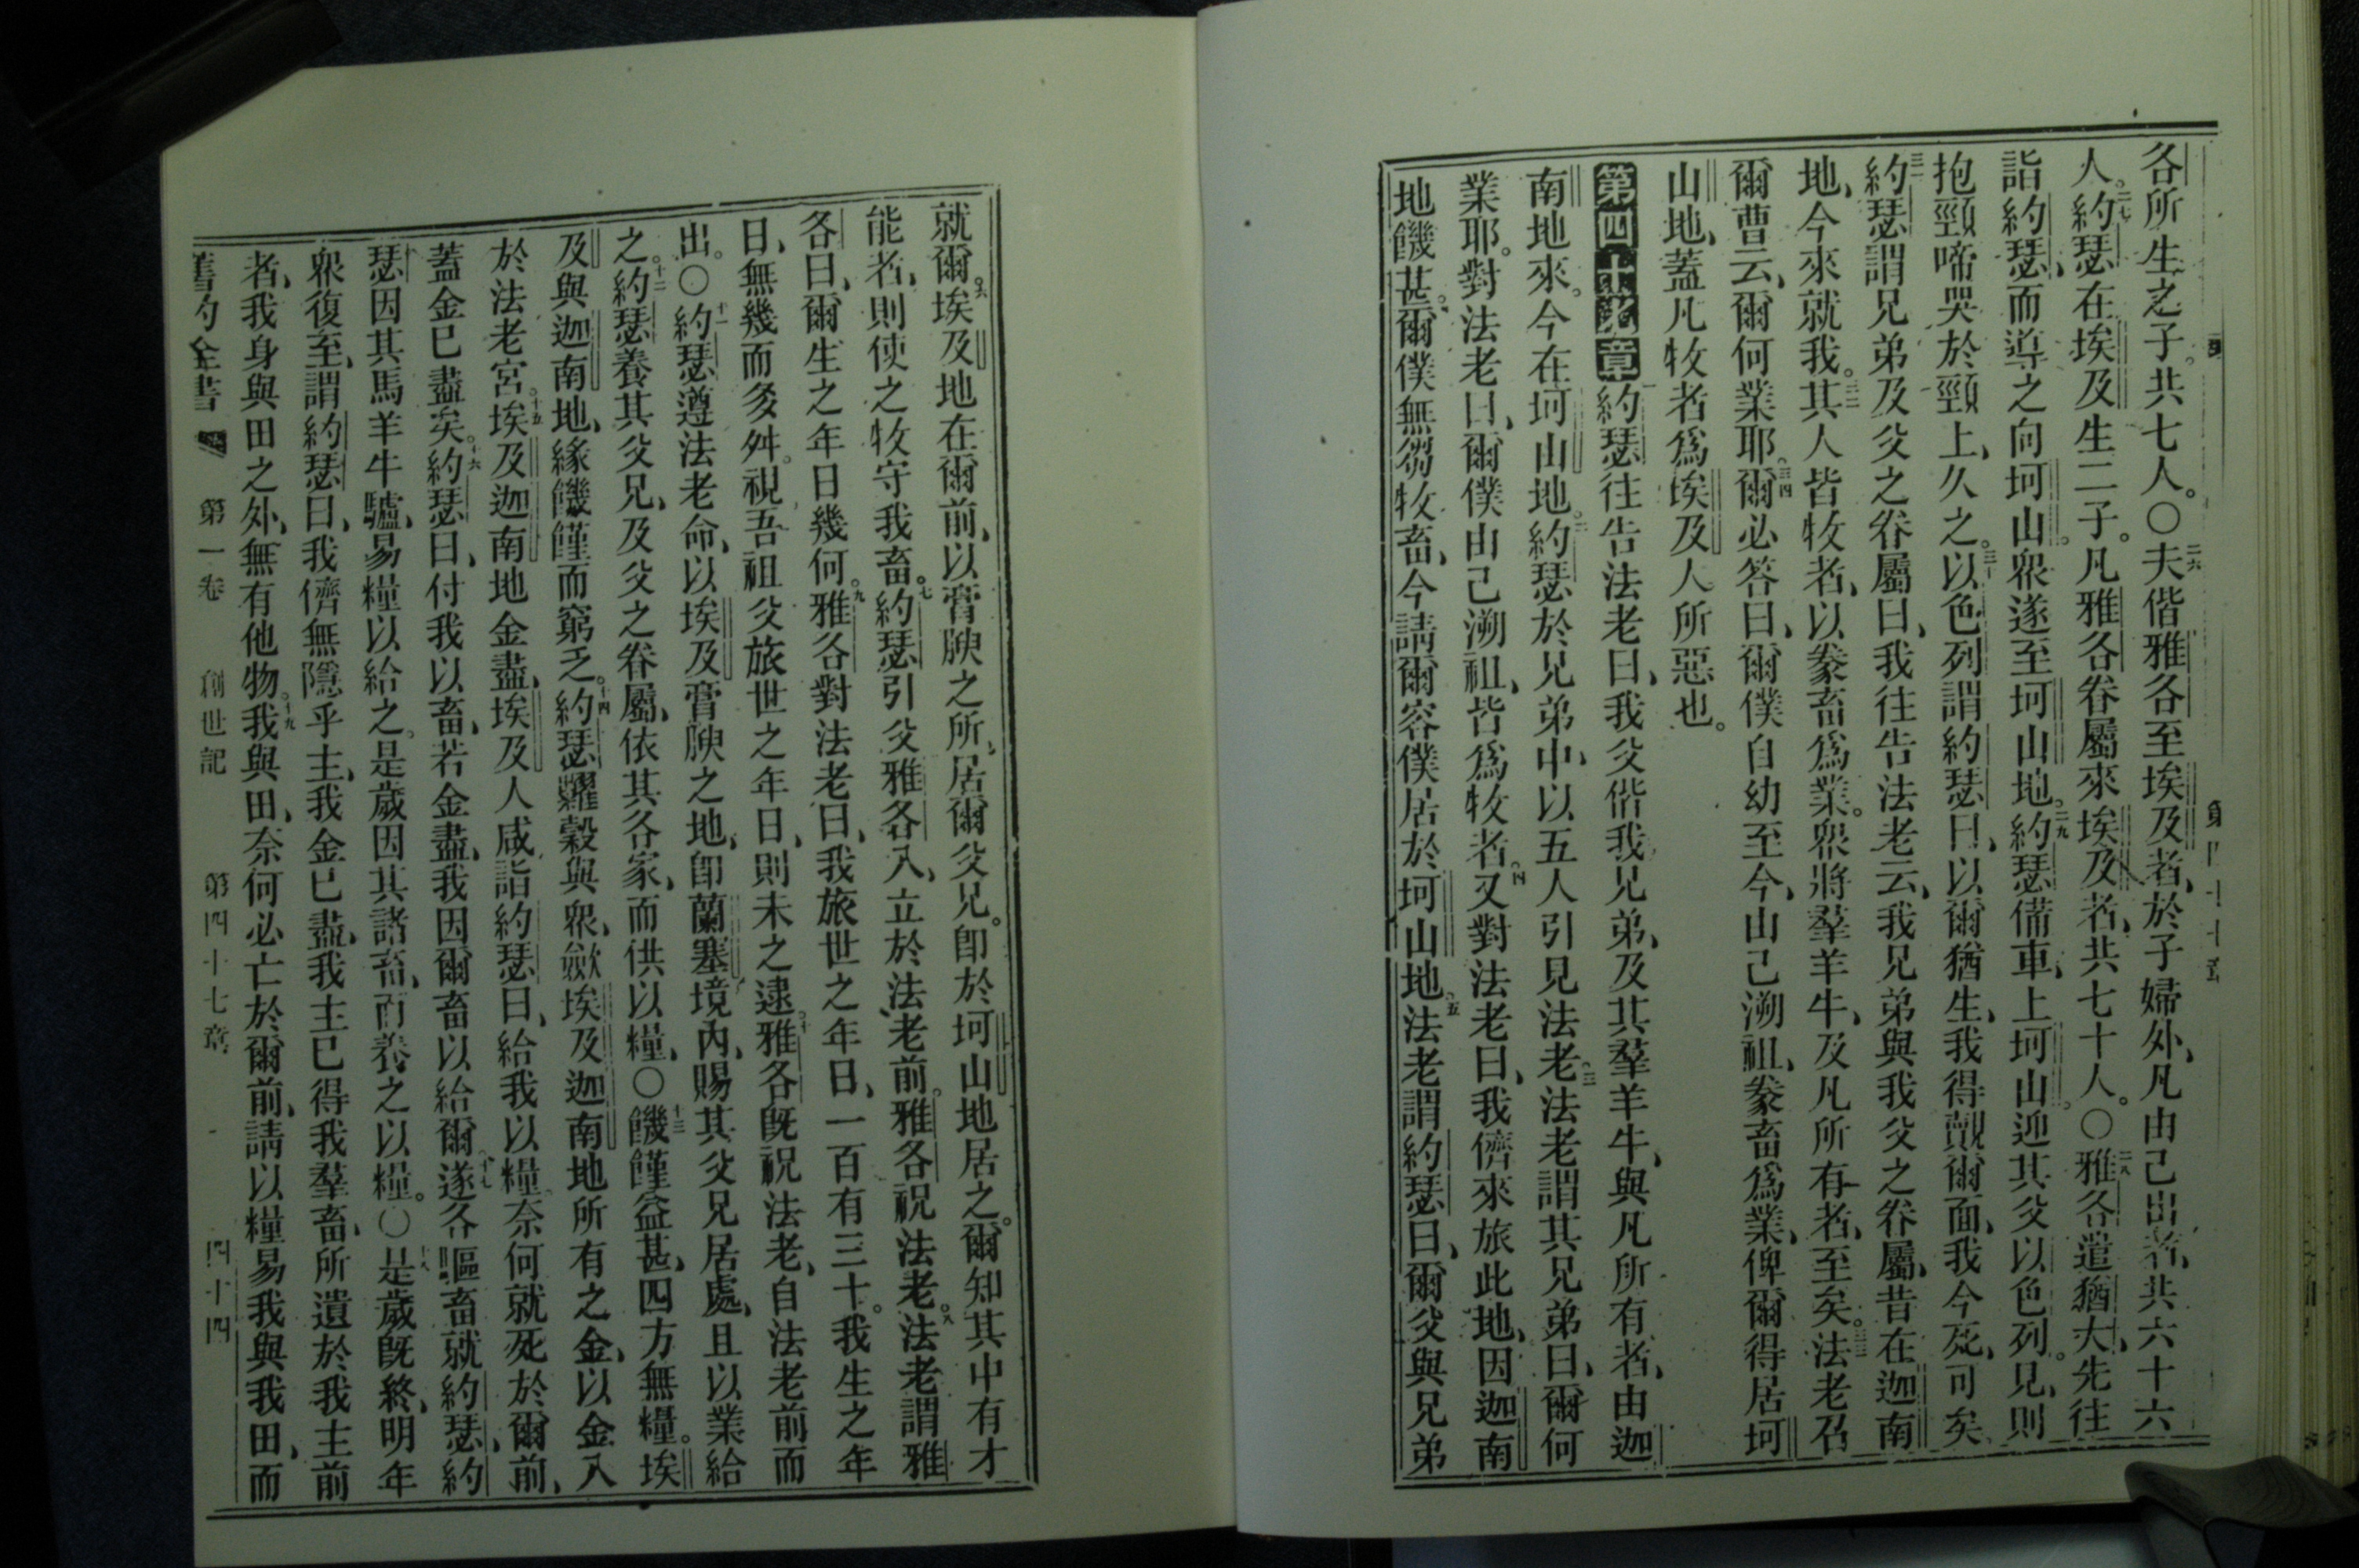 各所生之子。共七人。〇二六夫偕雅各至埃及者、於子婦外、凡由己出者、共六十六
人。二七約瑟在埃及生二子。凡雅各眷屬來埃及者、共七十人。〇二八雅各遣猶大先往
詣約瑟、而導之向坷山。眾遂至坷山地。二九約瑟備車、上坷山。迎其父以色列。見、則
抱頸啼哭於頸上、久之。三十以色列謂約瑟曰、以爾猶生、我得覿爾面、我今死、可矣
三一約瑟謂兄弟及父之眷屬曰、我往告法老云、我兄弟與我父之眷屬、昔在迦南
地、今來就我。三二其人皆牧者、以豢畜爲業。眾將羣羊牛、及凡所有者、至矣。三三法老召
爾曹云、爾何業耶。三四爾必答曰、爾僕自幼至今、由己溯祖、豢畜爲業、俾爾得居坷
山地、蓋凡牧者爲埃及人所惡也。
第四十七章一約瑟往告法老曰、我父偕我兄弟、及其羣羊牛、與凡所有者、由迦
南地來。今在坷山地。二約瑟於兄弟中、以五人引見法老。三法老謂其兄弟曰、爾何
業耶。對法老曰、爾僕由己溯祖、皆爲牧者。四又對法老曰、我儕來旅此地、因迦南
地饑甚。爾僕無芻牧畜、今請爾容僕居於坷山地。五法老謂約瑟曰、爾父與兄弟
就爾。六埃及地在爾前、以膏腴之所、居爾父兄。卽於坷山地居之。爾知其中有才
能者、則使之牧守我畜。七約瑟引父雅各入、立於法老前。雅各祝法老。八法老謂雅
各曰、爾生之年日幾何。九雅各對法老曰、我旅世之年日、一百有三十。我生之年
日、無幾而多舛。視吾祖父旅世之年日、則未之逮。十雅各旣祝法老、自法老前而
出。〇十一約瑟遵法老命、以埃及膏腴之地、卽蘭塞境內、賜其父兄居處、且以業給
之。十二約瑟養其父兄、及父之眷屬、依其各家、而供以糧、〇十三饑饉益甚、四方無糧。埃
及與迦南地、緣饑饉而窮乏。十四約瑟糶穀與眾、斂埃及迦南地所有之金、以金入
於法老宮。十五埃及迦南地金盡、埃及人咸詣約瑟曰、給我以糧、奈何就死於爾前、
蓋金已盡矣。十六約瑟曰、付我以畜、若金盡、我因爾畜以給爾。十七遂各驅畜就約瑟、約
瑟因其馬羊牛驢、易糧以給之。是歲因其諸畜、而養之以糧。〇十八是歲旣終、明年
眾復至、謂約瑟曰、我儕無隱乎主、我金已盡、我主已得我羣畜、所遺於我主前
者、我身與田之外、無有他物。十九我與田、奈何必亡於爾前、請以糧易我與我田、而
舊約全書 第一卷 創世記 第四十七章 四十四